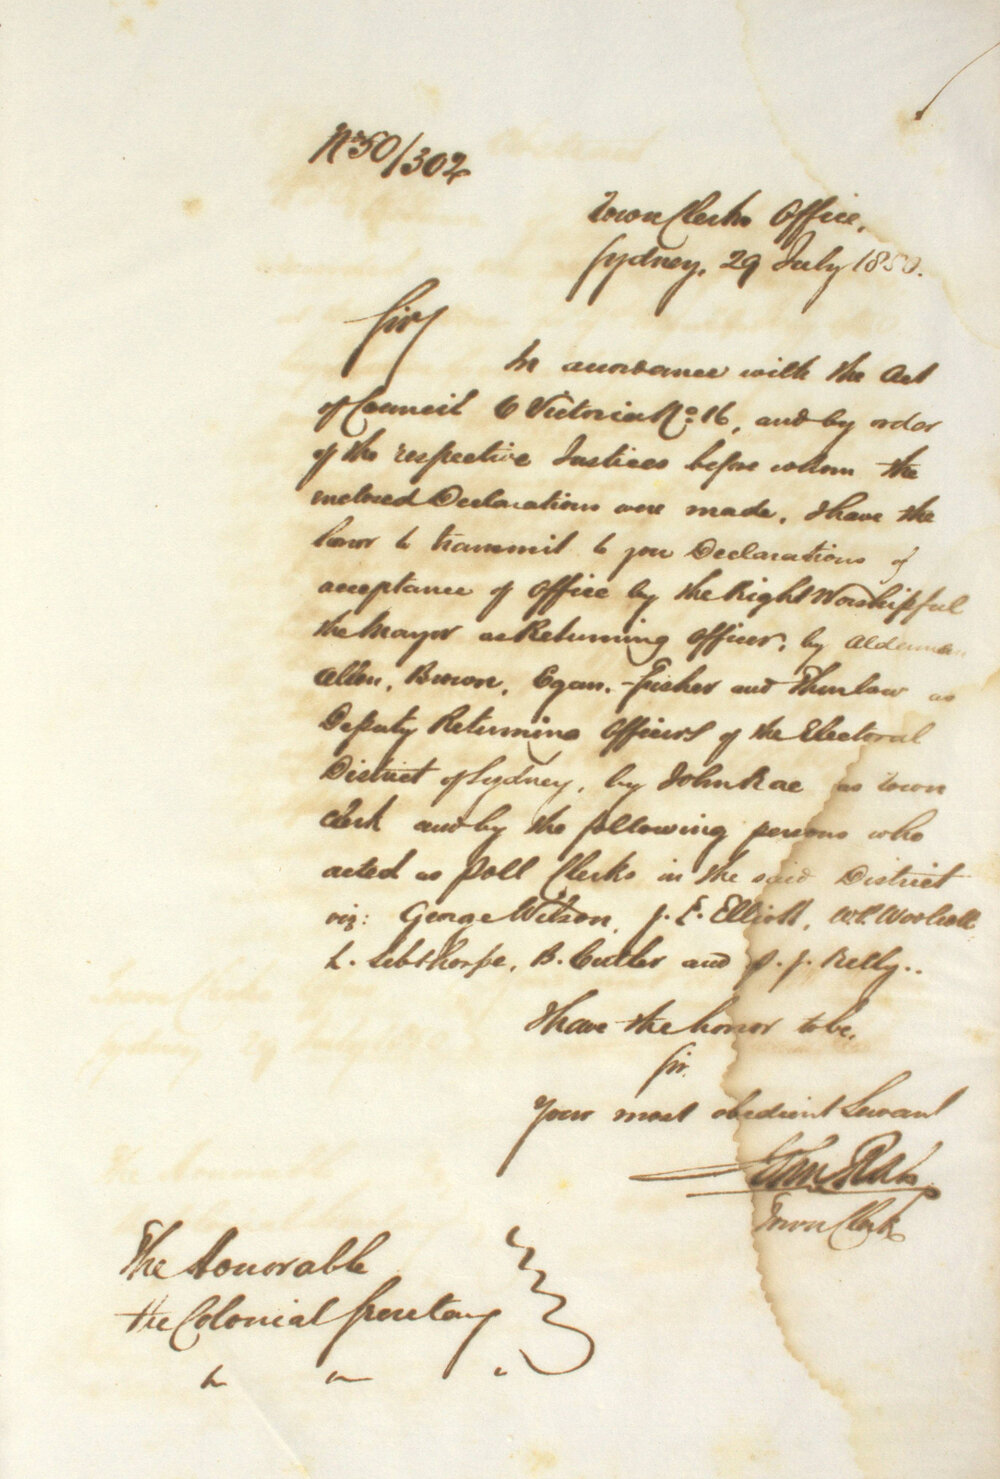 No 50/302
Town Clerks Office,
Sydney, 29 July 1850.
Sir
In accordance with the Act
of Council 6 Victoria No. 16, and by order
of the respective Justices before whom the
inclosed Declarations were made, I have the
honor to transmit to you Declarations of
acceptance of Office by the Right Worshipful
the Mayor as Returning Officer, by Alderman
Allen, Brown, Egan, Fisher and Thurlow as
Deputy Returning Officers of the Electoral
District of Sydney, by John Rae as Town
Clerk and by the following persons who
acted as Poll Clerks in the said District
viz: George Wilson, J. E. Elliott,
L. Sibthorpe, B. Cutler and J. Kelly..
I have the honor to be,
Sir.
Your most obedient Servant
John Rae
Town Clerk
The Honorable
the Colonial Secretary